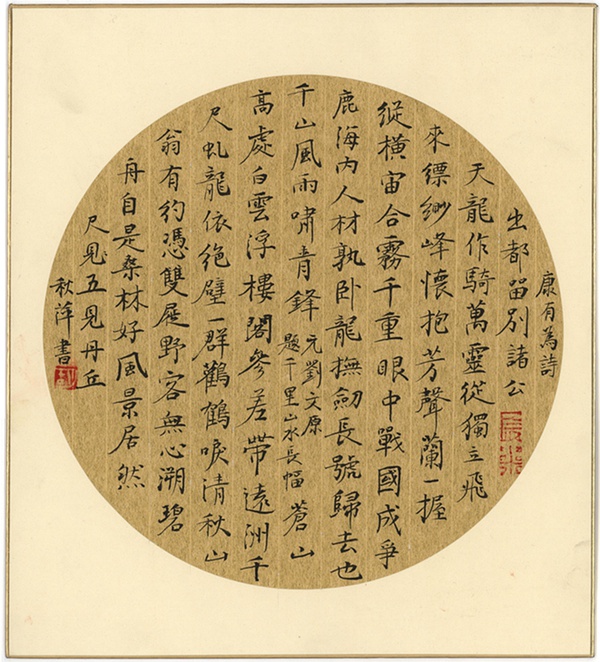 康有為詩
出都留別諸公
天龍作騎萬靈從獨立飛
來縹緲峰懷抱芳聲蘭一握
縱橫宙合霧千重眼中戰國成爭
鹿海內人材孰臥龍撫劒長號歸去也
千山風雨嘯青鋒
元劉文原
題千里山水長幅
蒼山
高處白雲浮樓閣參差帶遠洲千
尺虬龍依絕壁一群鸛鶴唳清秋山
翁有約憑雙屐野客無心溯碧
舟自是桑林好風景居然
尺見五見丹丘
秋萍書